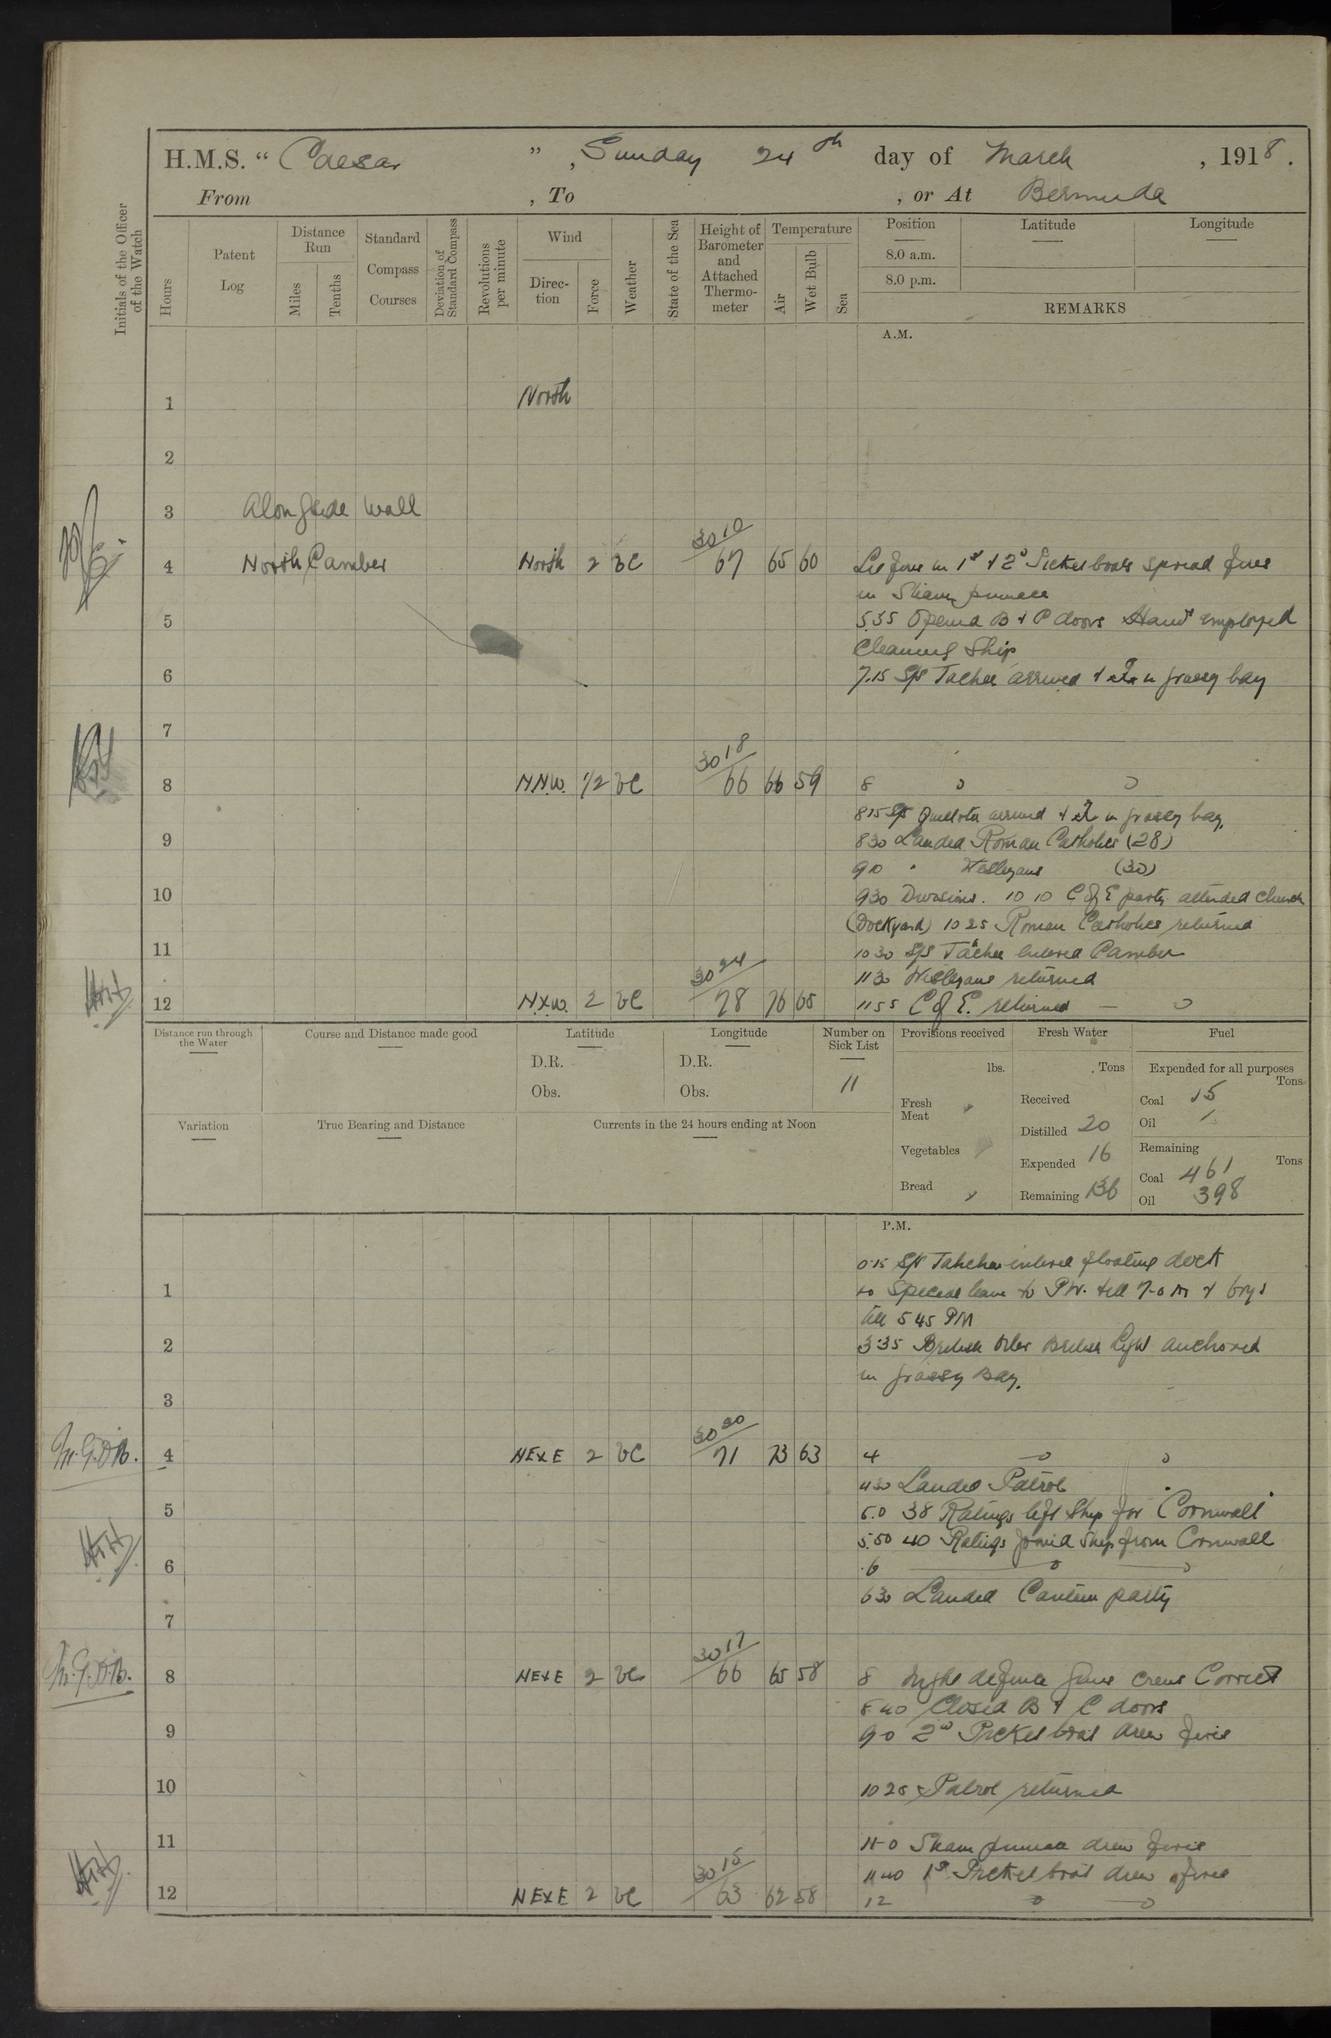 H.M.S. “ Caesar ” , Sunday 24th day of March , 1918.
From , To , or At Bermuda
Initials of the Officer of the Watch
Hours
Patent Log
Distance Run
Miles
Tenths
Standard Compass Courses
Deviation of Standard Compass
Revolutions per minute
Wind
Direction
Force
Weather
State of the Sea
Height of Barometer and Attached Thermometer
Temperature
Air
Wet Bulb
Sea
Position
8.0 a.m.
8.0 p.m.
Latitude
Longitude
REMARKS
A.M.
1 North
2
3 Alongside Wall
4 North Camber North 2 BC 30 10 67 65 60 Lit fires in 1st & 2d Picket boats spread fires
in Steam pinnace
5 5.35 Opened B & C doors Hands employed
Cleaning Ship
6 7.15 S/S arrived & in Grassy bay
7
8 N.N.W. 1/2 BC 30 18 66 66 59 8
815 S/S arrived & in Grassy bay
9 830 Landed Roman Catholics (28)
90 " Wesleyans (30)
10 930 Divisions. 10 10 C of E party attended Church
(Dockyard) 10 25 Roman Catholics returned
11 10 30 S/S entered Camber
11 30 Wesleyans returned
12 N.x.W. 2 BC 30 24 78 76 65 1155 C of E. returned
Distance run through the Water
Course and Distance made good
Latitude
D.R.
Obs.
Longitude
D.R.
Obs.
Number on Sick List
11
Provisions received
lbs.
Fresh Meat
Vegetables
Bread
Fresh Water
Tons
Received
Distilled 20
Expended 16
Remaining 136
Fuel
Expended for all purposes
Tons
Coal 15
Oil
Remaining
Tons
Coal 461
Oil 398
Variation
True Bearing and Distance
Currents in the 24 hours ending at Noon
P.M.
0.15 S/S entered floating dock
1 Special leave to till 7-0 & boys
till 5 45 PM
2 3.35 British Oiler British Light anchored
in Grassy Bay.
3
M.G.D.B. 4 NExE 2 BC 30 20 71 73 63 4
430 Landed Patrol
5 5.0 38 Ratings left Ship for Cornwall
5.50 40 Ratings joined Ship from Cornwall
6 6
630 Landed Canteen party
7
M.G.D.B. 8 NExE 2 BC 30 17 66 65 58 8 Night defence guns crews Correct
8 40 Closed B & C doors
9 9-0 2d Picket boat drew fires
10 10 25 Patrol returned
11 11-0 Steam pinnace drew fires
11 40 1st Picket boat drew fires
12 NExE 2 BC 30 15 63 62 58 12